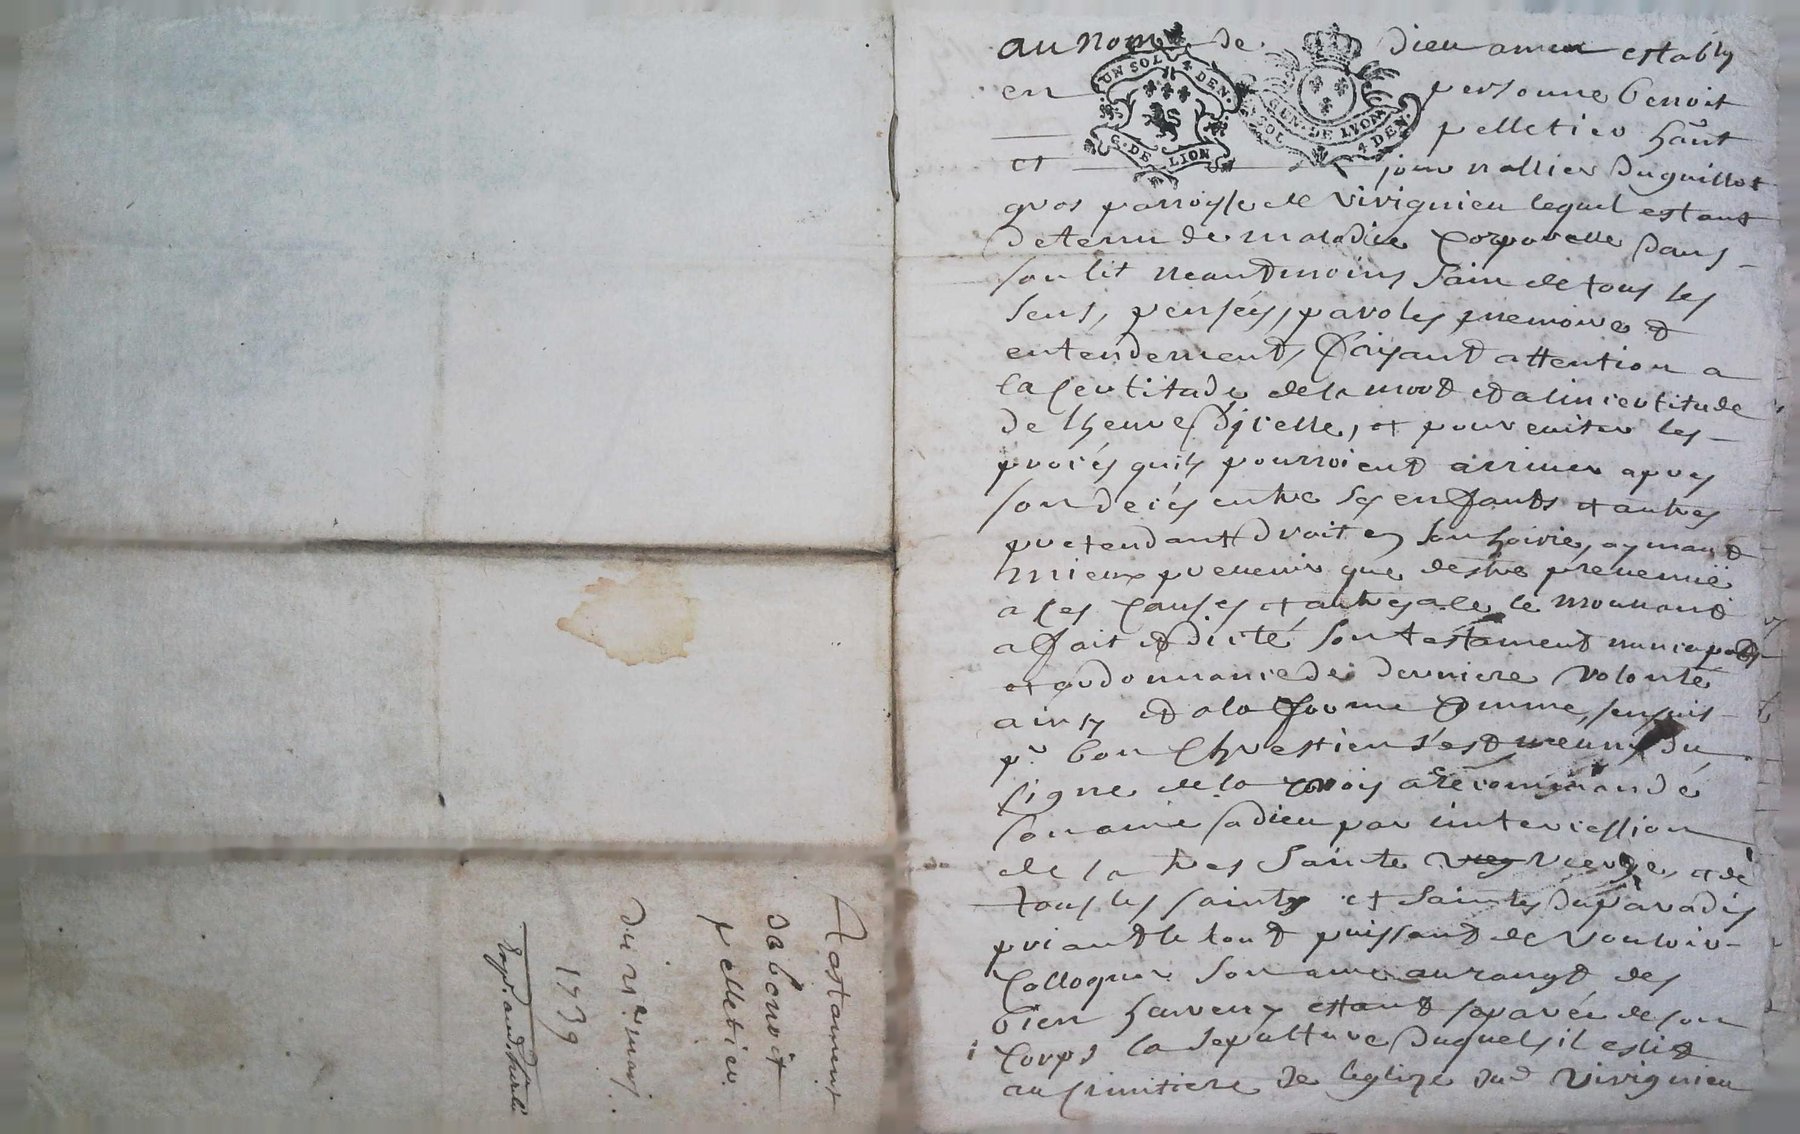 Testament
de benoit
pelletier
du 21e mars
1739
au nom de dieu amen estably
UN SOL 4 DEN.
G. DE LION
GEN. DE LYON
SOL 4 DEN.
en personne benoit
pelletier hant
et journallier du guillot
gros parroisse de virignieu lequel estant
detenu de maladie corporelle dans
son lit neantmoins sain de tous les
sens, pensées, paroles, memoire et
entendement, faisant attention a
la certitude de la mort et a lincertitude
de lheure dicelle, et pour eviter les
procès quils pourroient arriver apres
son decès entre ses enfants et autres
pretendant droit en son hoirie, aymant
mieux prevenir que destre prevenuë
a ces causes et autres a ce le mouvant
a fait et dicté son testament nuncupatif
et ordonnance de derniere volonté
ainsy et a la forme comme sensuit
pr bon chrestien s'est meuny du
signe de la croix a recommandé
son ame a dieu par intercession
de la tres sainte vierge, et de
tous les saints et saintes du paradis
priant le tout puissant de vouloir
colloquer son ame au rangt des
bien hureux estant separée de son
corps la sepulture duquel il eslit
au cimitiere de leglize dud virignieu